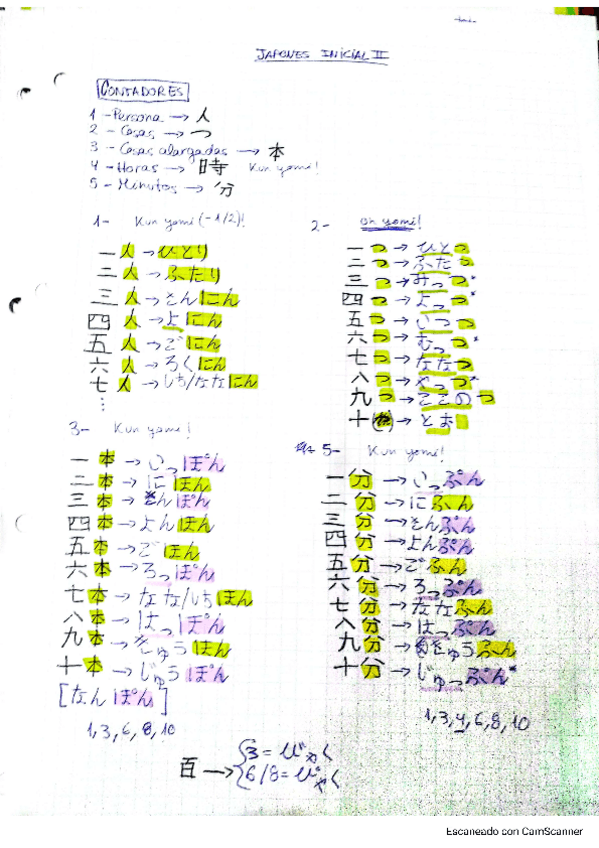 JAPONES INICIAL II
CONTADORES
1 - Persona → 人
2 - Cosas → つ
3 - Cosas alargadas → 本
4 - Horas → 時 Kun yomi!
5 - Minutos → 分
1- Kun yomi (-1/2)!
一人 → ひとり
二人 → ふたり
三人 → さんにん
四人 → よにん
五人 → ごにん
六人 → ろくにん
七人 → しち/ななにん
⋮
2- On yomi!
一つ → ひとつ
二つ → ふたつ
三つ → みっつ*
四つ → よっつ*
五つ → いつつ
六つ → むっつ*
七つ → ななつ
八つ → やっつ*
九つ → ここのつ
十 → とお
3- Kun yomi!
一本 → いっぽん
二本 → にほん
三本 → さんぽん
四本 → よんほん
五本 → ごほん
六本 → ろっぽん
七本 → なな/しちほん
八本 → はっぽん
九本 → きゅうほん
十本 → じゅうぽん
[なんぽん]
1, 3, 6, 8, 10
5- Kun yomi!
一分 → いっぷん
二分 → にふん
三分 → さんぷん
四分 → よんぷん
五分 → ごふん
六分 → ろっぷん
七分 → ななふん
八分 → はっぷん
九分 → きゅうふん
十分 → じゅっぷん*
1, 3, 4, 6, 8, 10
百 → 3 = びゃく
6/8 = ぴゃく
Escaneado con CamScanner